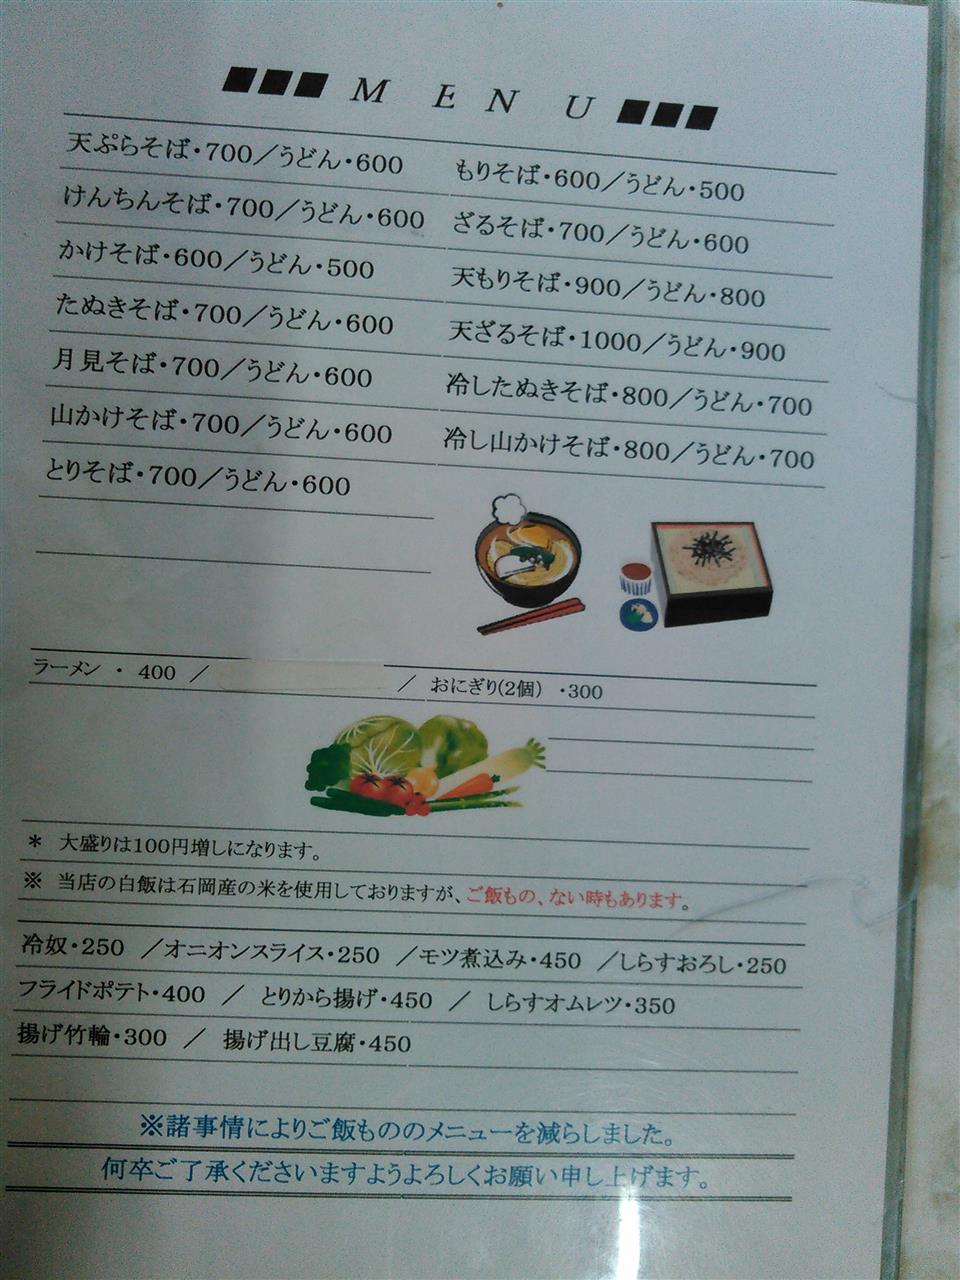 MENU
天ぷらそば・700／うどん・600
けんちんそば・700／うどん・600
かけそば・600／うどん・500
たぬきそば・700／うどん・600
月見そば・700／うどん・600
山かけそば・700／うどん・600
とりそば・700／うどん・600
もりそば・600／うどん・500
ざるそば・700／うどん・600
天もりそば・900／うどん・800
天ざるそば・1000／うどん・900
冷したぬきそば・800／うどん・700
冷し山かけそば・800／うどん・700
ラーメン ・ 400 ／ ／ おにぎり(2個) ・300
＊ 大盛りは100円増しになります。
※ 当店の白飯は石岡産の米を使用しておりますが、ご飯もの、ない時もあります。
冷奴・250 ／オニオンスライス・250 ／モツ煮込み・450 ／しらすおろし・250
フライドポテト・400 ／ とりから揚げ・450 ／ しらすオムレツ・350
揚げ竹輪・300 ／ 揚げ出し豆腐・450
※諸事情によりご飯もののメニューを減らしました。
何卒ご了承くださいますようよろしくお願い申し上げます。